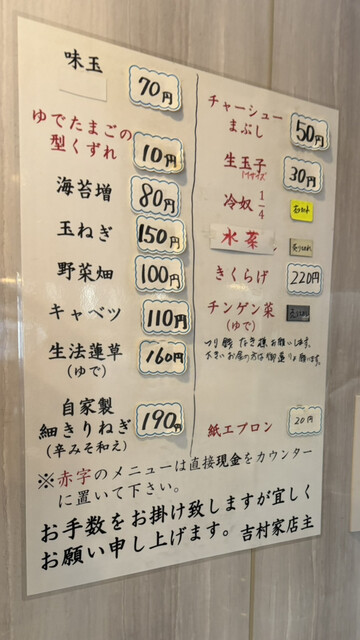 味玉 70円
ゆでたまごの
型くずれ 10円
海苔増 80円
玉ねぎ 150円
野菜畑 100円
キャベツ 110円
生法蓮草 160円
(ゆで)
自家製
細きりねぎ 190円
(辛みそ和え)
チャーシュー
まぶし 50円
生玉子 30円
Mサイズ
冷奴 1/4
水菜
きくらげ 220円
チンゲン菜
(ゆで)
つり銭なき様お願いします。
紙エプロン 20円
※赤字のメニューは直接現金をカウンター
に置いて下さい。
お手数をお掛け致しますが宜しく
お願い申し上げます。吉村家店主